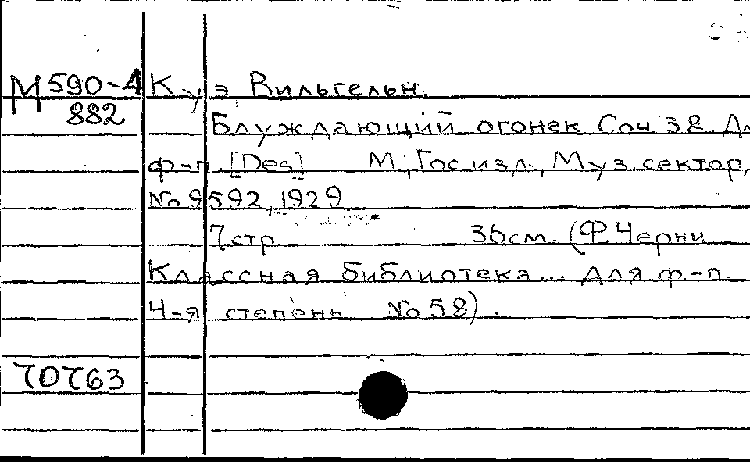 М 590-4 Куэ Вильгельм.
882
Блуждающий огонек Соч. 38. Дл
ф-п. [Des] М., Гос. изд., Муз. сектор,
№ 9592, 1929
7 стр 36 см. (Ф. Черни
Классная библиотека... Для ф-п.
4-я степень № 58).
70763